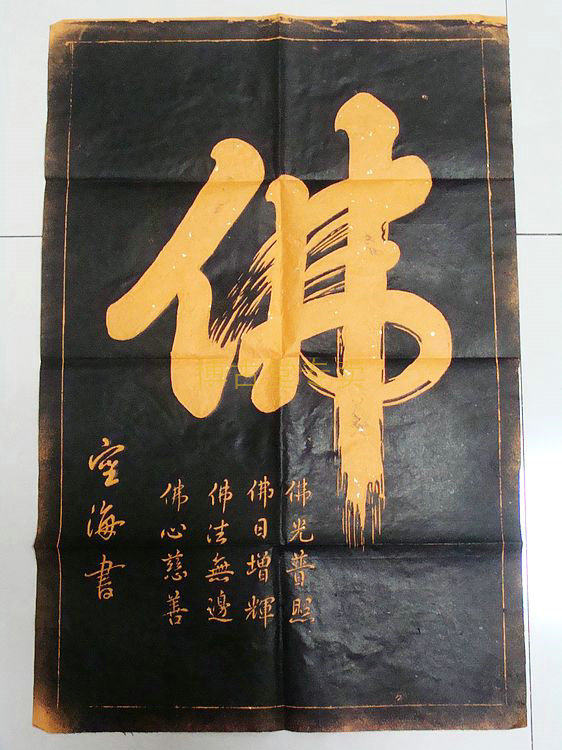 佛
佛光普照
佛日增輝
佛法無邊
佛心慈善
空海書